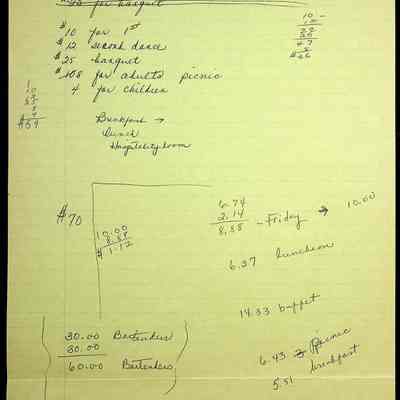 for banquet
$10 for 1st
$12 second dance
$25 banquet
for adults picnic
4 for children
Breakfast →
Lunch
Hospitality Room
$59
$70
10.00
8.88
$1.12
6.74
2.14
8.88 - Friday → 10.00
6.37 luncheon
14.33 buffet
6.43 Picnic
5.51 breakfast
30.00 Bartenders
30.00
60.00 Bartenders